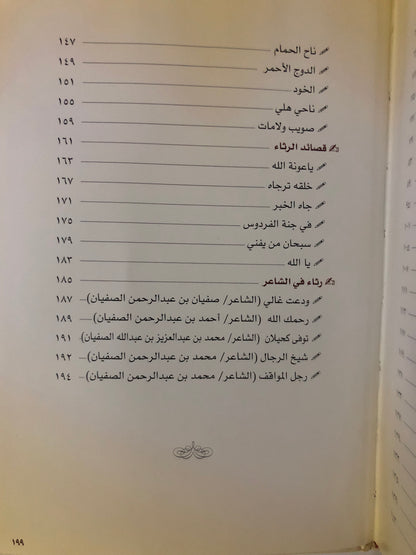 ناح الحمام ١٤٧
الدوج الأحمر ١٤٩
الخود ١٥١
ناحي هلي ١٥٥
صويب ولامات ١٥٩
قصائد الرثاء ١٦١
ياعونة الله ١٦٣
خلقه ترجاه ١٦٧
جاه الخبر ١٧١
في جنة الفردوس ١٧٥
سبحان من يفني ١٧٩
يا الله ١٨٣
رثاء في الشاعر ١٨٥
ودعت غالي (الشاعر/ صفيان بن عبدالرحمن الصفيان) ١٨٧
رحمك الله (الشاعر/ أحمد بن عبدالرحمن الصفيان) ١٨٩
توفى كحيلان (الشاعر/ محمد بن عبدالعزيز بن عبدالله الصفيان) ١٩١
شيخ الرجال (الشاعر/ محمد بن عبدالرحمن الصفيان) ١٩٢
رجل المواقف (الشاعر/ محمد بن عبدالرحمن الصفيان) ١٩٤
١٩٩